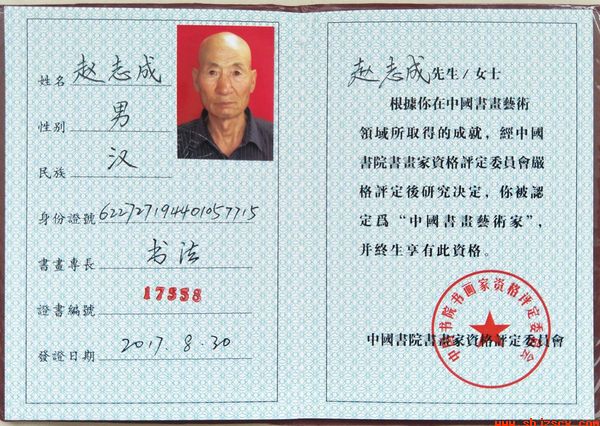 姓名 赵志成
性别 男
民族 汉
身份證號 622727194401057715
書畫專長 书法
證書編號 17558
發證日期 2017.8.30
赵志成先生/女士
根據你在中國書畫藝術
領域所取得的成就，經中國
書院書畫家資格評定委員會嚴
格評定後研究决定，你被認
定爲“中國書畫藝術家”，
并終生享有此資格。
中国书院书画家资格评定委员会
中國書院書畫家資格評定委員會
www.shjzscx.com